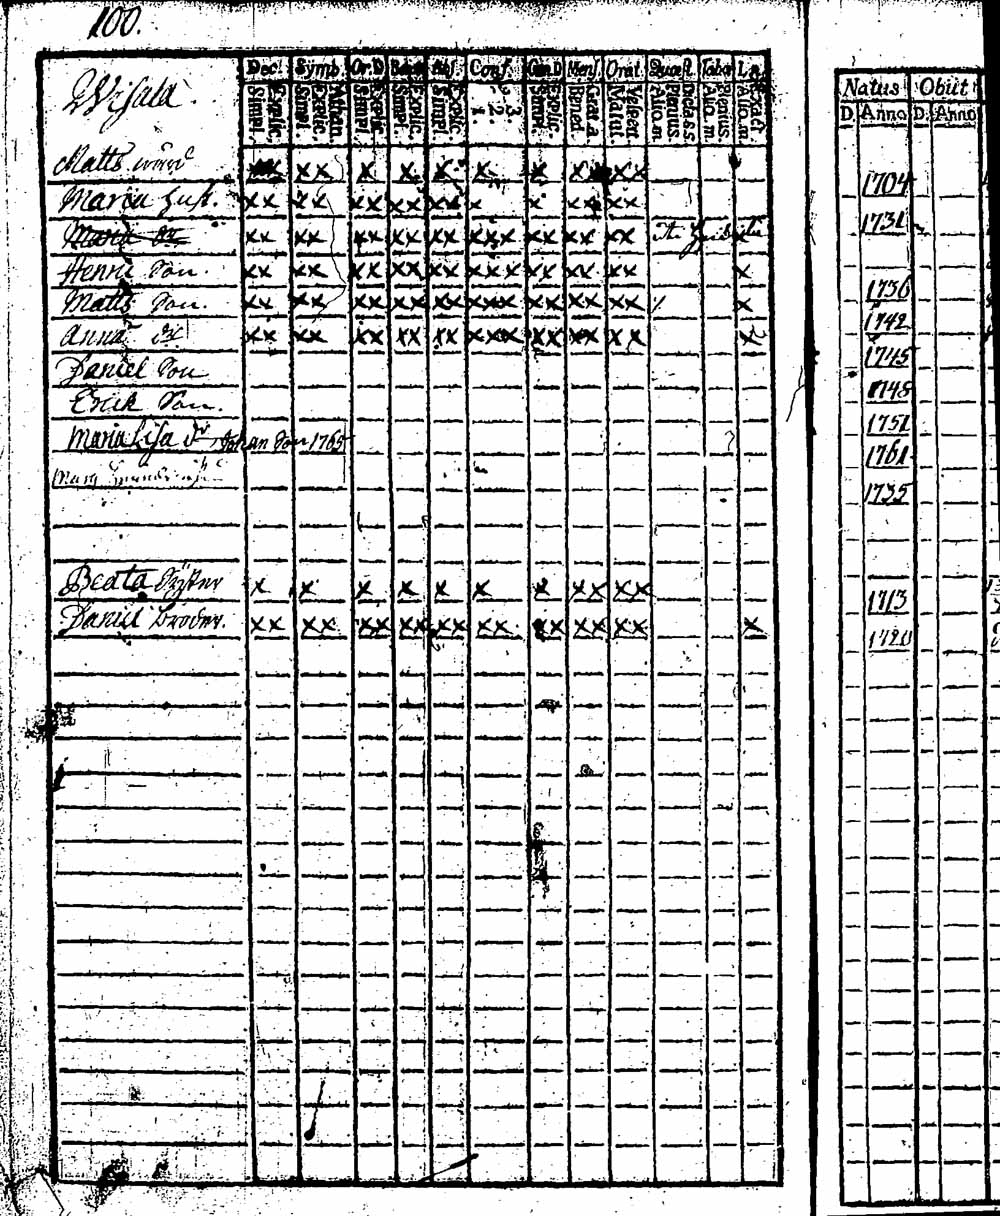 100.
Decl. Symb. Or. D Bapt. Abs. Conf. Cœn. D Mens. Orat. Quæst. Tabu
Natus Obiit
Simpl. Explic. Simpl. Explic. Athan. Simpl. Explic. Simpl. Explic. Simpl. Explic. 1. 2. 3. Simpl. Explic. Bened. Grat. a Matut. Vespert. Aliq. m Plenius. Dicta s s Aliq. m Plenius.
D. Anno D. Anno
Matts xx x x x x x x xx
1704
Maria xx xx xx xx xx x x xx xx
1731
Maria xx xx xx xx xx xxx xx xx xx x
Henric Son. xx xx xx xx xx xxx xx xx xx x
1736
Matts Son. xx xx xx xx xx xxx xx xx xx x
1742
Anna xx xx xx xx xx xxx xx xx xx x
1745
Daniel Son
1748
Erick Son.
1751
Maria Lisa Johan Son 1765
1761
1735
Beata Syster x x x x x x x xx xx
1713
Daniel Broder. xx xx xx xx xx xx xx xx xx x
1720